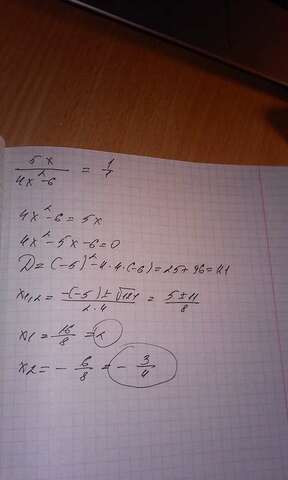 5x / 4x²-6 = 1/1
4x²-6=5x
4x²-5x-6=0
D=(-5)²-4·4·(-6)=25+96=121
x1,2 = -(-5)±√121 / 2·4 = 5±11 / 8
x1 = 16/8 = 2
x2 = - 6/8 = - 3/4